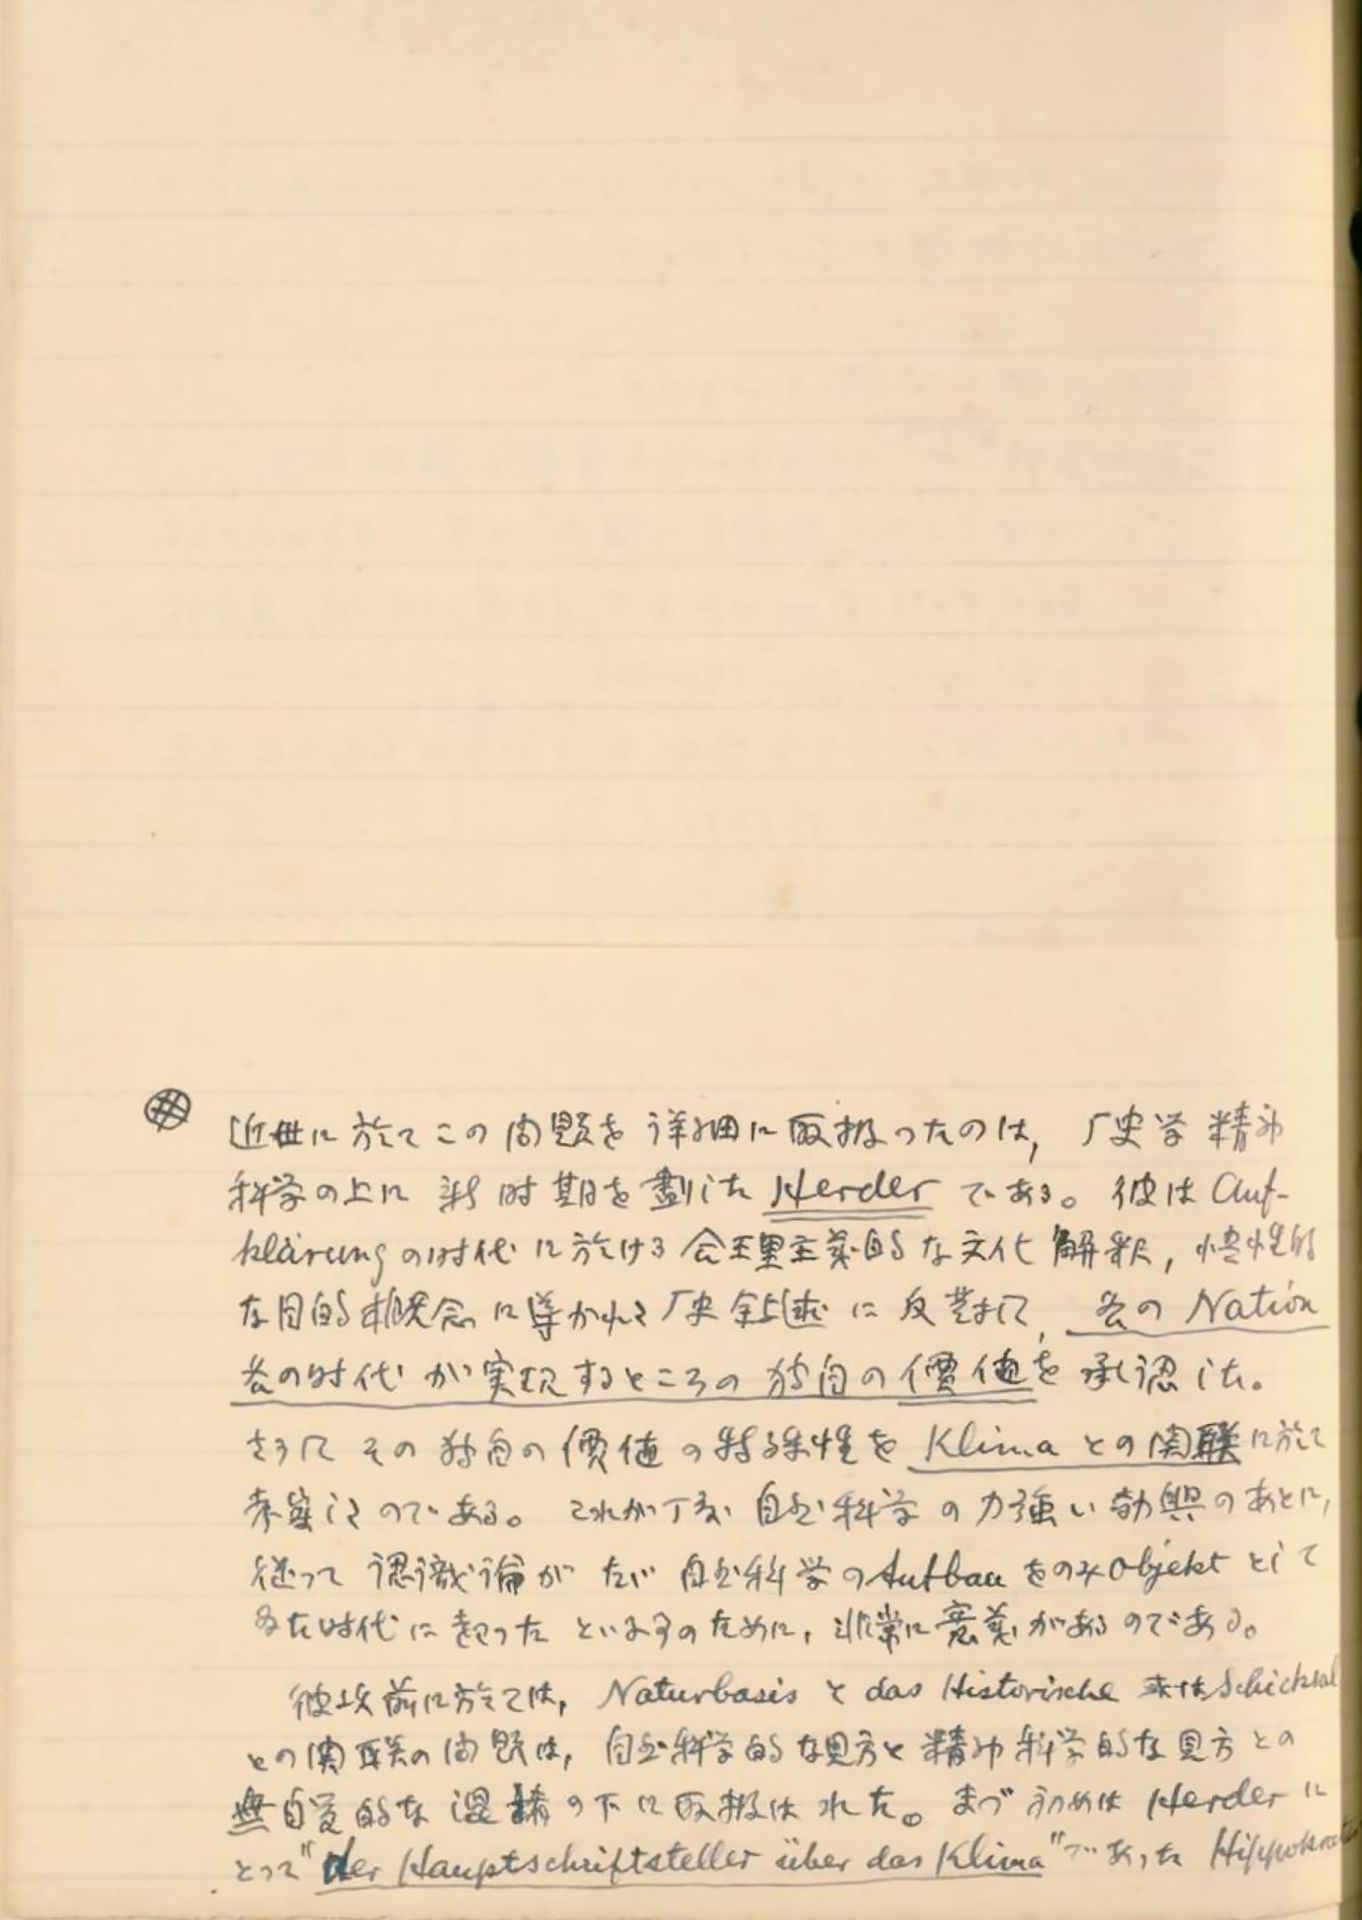 近世に於てこの問題を詳細に取扱ったのは，厂史学精神
科学の上に新時期を劃した Herder である。彼は Auf-
klärung の時代に於ける合理主義的な文化解釈，悟性的
な目的概念に導かれる厂史叙述に反対して，各の Nation
各の時代が実現するところの独自の價値を承認した。
さうしてその独自の價値の特殊性を Klima との関联に於て
考察したのである。これが丁度自然科学の力強い勃興のあとに，
従って認識論がたゞ自然科学の Aufbau をのみ Objekt として
ゐた時代に起ったといふそのために，非常に意義があるのである。
彼以前に於ては，Naturbasis と das Historische 或は Schicksal
との関联の問題は，自然科学的な見方と精神科学的な見方との
無自覚的な混淆の下に取扱はれた。まづ初めは Herder に
とって "der Hauptschriftsteller über das Klima" であった